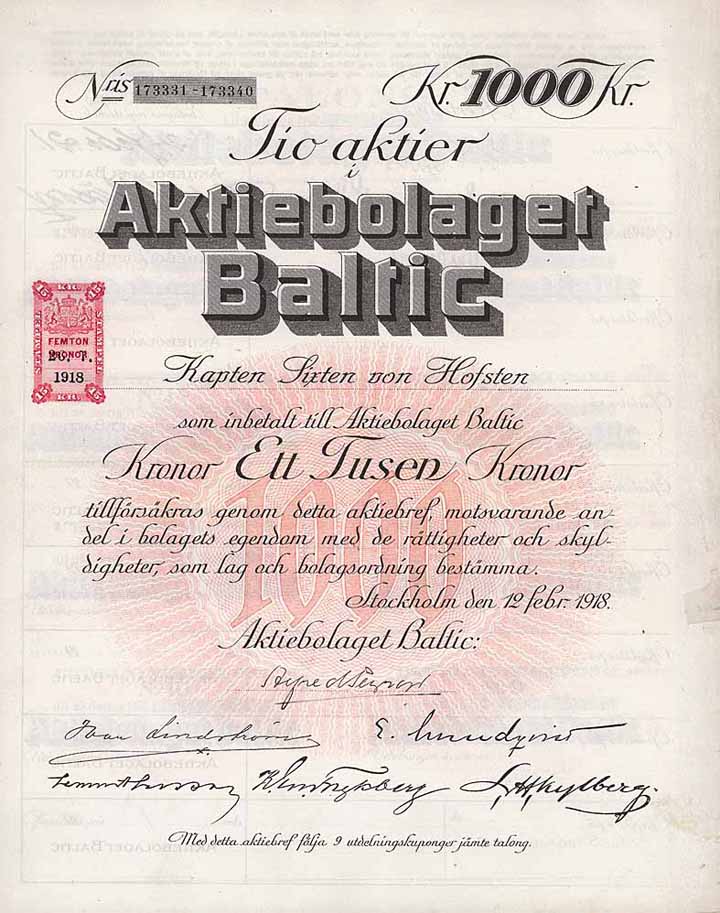 Nris 173331-173340
Kr. 1000 Kr.
Tio aktier
i
Aktiebolaget
Baltic
KR.
15 15
STÄMPEL
FEMTON
KRONOR
26. 7.
1918
Kapten Sixten von Hofsten
som inbetalt till Aktiebolaget Baltic
Kronor Ett Tusen Kronor
tillförsäkras genom detta aktiebref, motsvarande an-
del i bolagets egendom med de rättigheter och skyl-
digheter, som lag och bolagsordning bestämma.
1000
Stockholm den 12 febr. 1918.
Aktiebolaget Baltic:
E. Lundqvist
Med detta aktiebref följa 9 utdelningskuponger jämte talong.